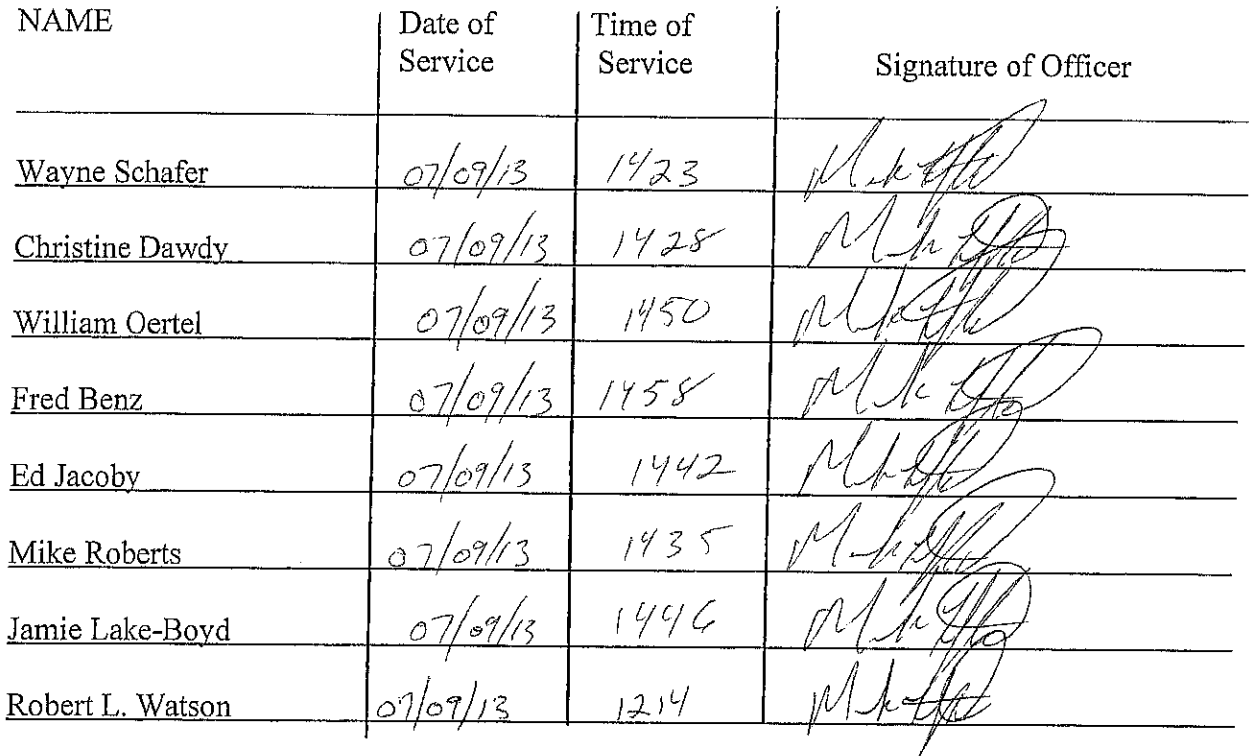 NAME Date of Time of
Service Service Signature of Officer
Wayne Schafer 07/09/13 1423
Christine Dawdy 07/09/13 1428
William Oertel 07/09/13 1450
Fred Benz 07/09/13 1458
Ed Jacoby 07/09/13 1442
Mike Roberts 07/09/13 1435
Jamie Lake-Boyd 07/09/13 1446
Robert L. Watson 07/09/13 1214